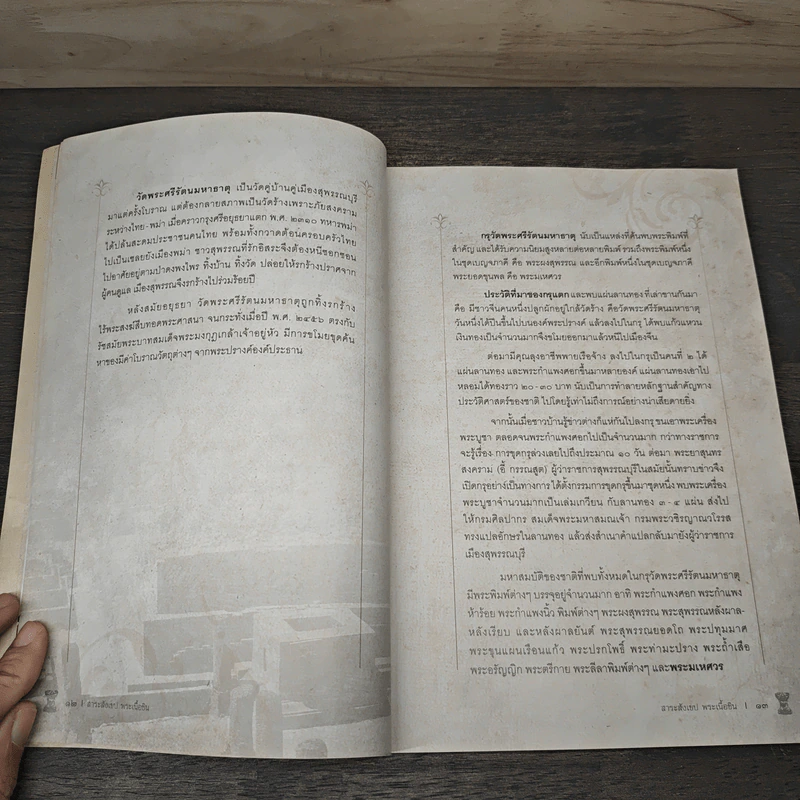 วัดพระศรีรัตนมหาธาตุ เป็นวัดคู่บ้านคู่เมืองสุพรรณบุรี
มาแต่ครั้งโบราณ แต่ต้องกลายสภาพเป็นวัดร้างเพราะภัยสงคราม
ระหว่างไทย-พม่า เมื่อคราวกรุงศรีอยุธยาแตก พ.ศ. ๒๓๑๐ ทหารพม่า
ได้ปล้นสะดมประชาชนคนไทย พร้อมทั้งกวาดต้อนครอบครัวไทย
ไปเป็นเชลยยังเมืองพม่า ชาวสุพรรณที่รักอิสระจึงต้องหนีซอกซอน
ไปอาศัยอยู่ตามป่าดงพงไพร ทิ้งบ้าน ทิ้งวัด ปล่อยให้รกร้างปราศจาก
ผู้คนดูแล เมืองสุพรรณจึงรกร้างไปร่วมร้อยปี
หลังสมัยอยุธยา วัดพระศรีรัตนมหาธาตุถูกทิ้งรกร้าง
ไร้พระสงฆ์สืบทอดพระศาสนา จนกระทั่งเมื่อปี พ.ศ. ๒๔๕๖ ตรงกับ
รัชสมัยพระบาทสมเด็จพระมงกุฎเกล้าเจ้าอยู่หัว มีการขโมยขุดค้น
หาของมีค่าโบราณวัตถุต่างๆ จากพระปรางค์องค์ประธาน
๑๒ | สาระสังเขป พระเนื้อชิน
กรุวัดพระศรีรัตนมหาธาตุ นับเป็นแหล่งที่ค้นพบพระพิมพ์ที่
สำคัญ และได้รับความนิยมสูงหลายต่อหลายพิมพ์ รวมถึงพระพิมพ์หนึ่ง
ในชุดเบญจภาคี คือ พระผงสุพรรณ และอีกพิมพ์หนึ่งในชุดเบญจภาคี
พระยอดขุนพล คือ พระมเหศวร
ประวัติที่มาของกรุแตก และพบแผ่นลานทอง ที่เล่าขานกันมา
คือ มีชาวจีนคนหนึ่งปลูกผักอยู่ใกล้วัดร้าง คือวัดพระศรีรัตนมหาธาตุ
วันหนึ่งได้ปีนขึ้นไปบนองค์พระปรางค์ แล้วลงไปในกรุ ได้พบแก้วแหวน
เงินทองเป็นจำนวนมากจึงขโมยออกมาแล้วหนีไปเมืองจีน
ต่อมามีคุณลุงอาชีพพายเรือจ้าง ลงไปในกรุเป็นคนที่ ๒ ได้
แผ่นลานทอง และพระกำแพงศอกขึ้นมาหลายองค์ แผ่นลานทองเอาไป
หลอมได้ทองราว ๒๐-๓๐ บาท นับเป็นการทำลายหลักฐานสำคัญทาง
ประวัติศาสตร์ของชาติ ไปโดยรู้เท่าไม่ถึงการณ์อย่างน่าเสียดายยิ่ง
จากนั้นเมื่อชาวบ้านรู้ข่าวต่างก็แห่กันไปลงกรุ ขนเอาพระเครื่อง
พระบูชา ตลอดจนพระกำแพงศอกไปเป็นจำนวนมาก กว่าทางราชการ
จะรู้เรื่อง การขุดกรุล่วงเลยไปถึงประมาณ ๑๐ วัน ต่อมา พระยาสุนทร
สงคราม (อี้ กรรณสูต) ผู้ว่าราชการสุพรรณบุรีในสมัยนั้นทราบข่าวจึง
เปิดกรุอย่างเป็นทางการ ได้ตั้งกรรมการขุดกรุขึ้นมาชุดหนึ่ง พบพระเครื่อง
พระบูชาจำนวนมากเป็นเล่มเกวียน กับลานทอง ๓-๔ แผ่น ส่งไป
ให้กรมศิลปากร สมเด็จพระมหาสมณเจ้า กรมพระวชิรญาณวโรรส
ทรงแปลอักษรในลานทอง แล้วส่งสำเนาคำแปลกลับมายังผู้ว่าราชการ
เมืองสุพรรณบุรี
มหาสมบัติของชาติที่พบทั้งหมดในกรุวัดพระศรีรัตนมหาธาตุ
มีพระพิมพ์ต่างๆ บรรจุอยู่จำนวนมาก อาทิ พระกำแพงศอก พระกำแพง
ห้าร้อย พระกำแพงนิ้ว พิมพ์ต่างๆ พระผงสุพรรณ พระสุพรรณหลังผาล-
หลังเรียบ และหลังผาลยันต์ พระสุพรรณยอดโถ พระปทุมมาศ
พระขุนแผนเรือนแก้ว พระปรกโพธิ์ พระท่ามะปราง พระถ้ำเสือ
พระอรัญญิก พระตรีกาย พระลีลาพิมพ์ต่างๆ และพระมเหศวร
สาระสังเขป พระเนื้อชิน | ๑๓